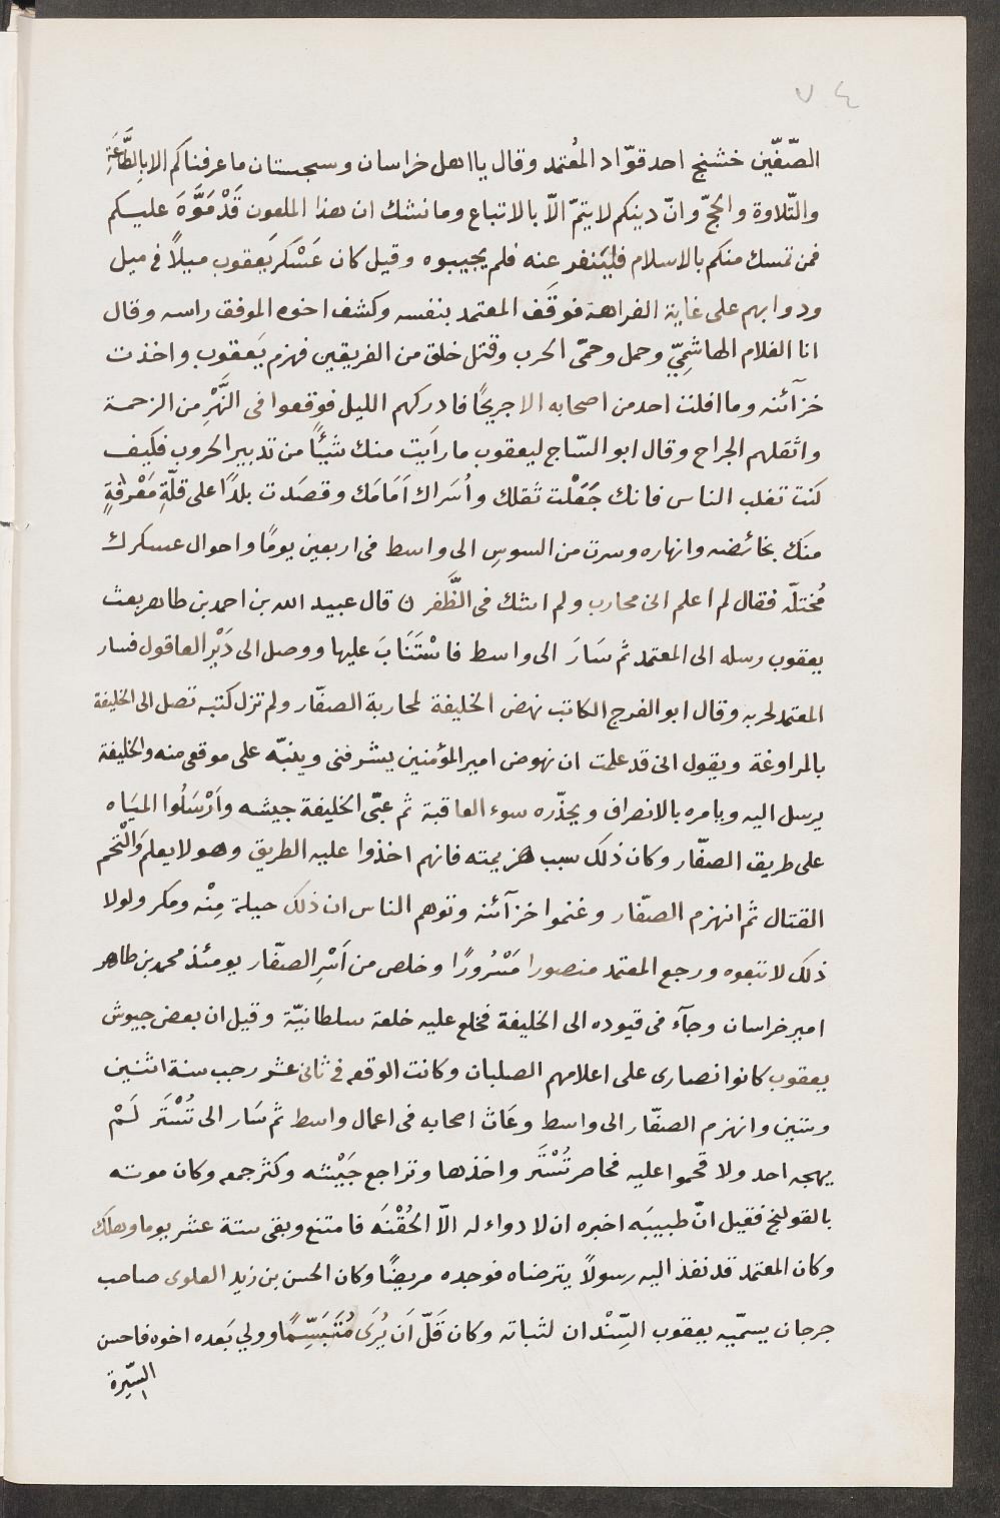 ٧٠٤
الصّفّين خشنج احد قوّاد المُعتمد وقال يا اهل خراسان وسجستان ما عرفناكم الا بِالطَّاعَةِ
والتّلاوة والحجّ وانّ دينكم لا يتمّ الاّ بالاتباع وما نشك ان هذا الملعون قَدْ مَوَّهَ عليكم
فمن تمسك منكم بالاسلام فليَنفر عنه فلم يجيبوه وقيل كان عَسْكَر يَعقوب ميلاً في ميل
ودوابهم على غاية الفراهة فوقَف المعتمد بنفسه وكشف اخوه الموفق راسه وقال
انا الغلام الهاشِمِيّ وحمل وحمّى الحرب وقتل خلق من الفريقين فهزم يَعقوب واخذت
خزآئنه وما افلت احد من اصحابه الا جريحًا فادركهم الليل فوقعوا فى النَّهْرِ من الزحمة
واثقلهم الجراح وقال ابو السّاج ليعقوب ما رأيت منك شيْأً من تدبير الحروب فكيف
كنت تغلب الناس فانك جَعَلْت ثقلك وأُسَراك اَمَامَك وقصَدت بلدًا على قلّةِ مَعْرفةٍ
منكَ بمخائضه وانهاره وسرت من السوسِ الى واسط فى اربعين يومًا واحوال عسكرك
مُختلّه فقال لم اعلم انى محارب ولم اشك فى الظَّفر ن قال عبيد الله بن احمد بن طاهر بعث
يعقوب رسله الى المعتمد ثم سَارَ الى واسط فاسْتَنَابَ عليها ووصل الى دَيْر العاقول فسار
المعتمد لحربه وقال ابو الفرج الكاتب نهض الخليفة لمحاربة الصفّار ولم تزل كتبه تصل الى الخليفة
بالمراوغة ويقول انى قد علمت ان نهوض امير المؤمنين يشرفنى وينبّه على موقعى منه والخليفة
يرسل اليه ويامره بالانصراف ويحذّره سوء العاقبة ثم عبّى الخليفة جيشه وأَرْسَلُوا الميَاه
على طريق الصفّار وكان ذلك سبب هزيمته فانهم اخذوا عليه الطريق وهو لا يعلم وَالْتحم
القتال ثم انهزم الصفّار وغنموا خزآئنه وتوهم الناس ان ذلك حيلة مِنْه ومكر ولولا
ذلك لاتبعوه ورجع المعتمد منصورا مَسْرُورًا وخلص من اَسْرِ الصفّار يومئذ محمد بن طاهر
امير خراسان وجآء فى قيوده الى الخليفة فخلع عليه خلعة سلطانيّة وقيل ان بعض جيوش
يعقوب كانوا نصارى على اعلامهم الصلبان وكانت الوقعه فى ثانى عشر رجب سنة اثنين
وستين وانهزم الصفّار الى واسط وعَاث اصحابه فى اعمال واسط ثم سَار الى تُسْتَر لَمْ
يهجه احد ولا قحموا عليه فحاصر تُسْتَر واخذها وتراجع جَيْشه وكثر جمعه وكان موته
بالقولنج فقيل انّ طبيبَه اخبره ان لا دواء له الاّ الحُقْنَه فامتنع وبقى ستة عشر يوما وهلك
وكان المعتمد قد نفذ اليه رسولاً يترضاه فوجده مريضًا وكان الحسن بن زيد العلوى صاحب
جرجان يسمّيه يعقوب السِّنْدان لثباته وكان قَلّ اَن يُرَى مُتَبَسِّمًا وولي بَعده اخوه فاحسن
السّيرة